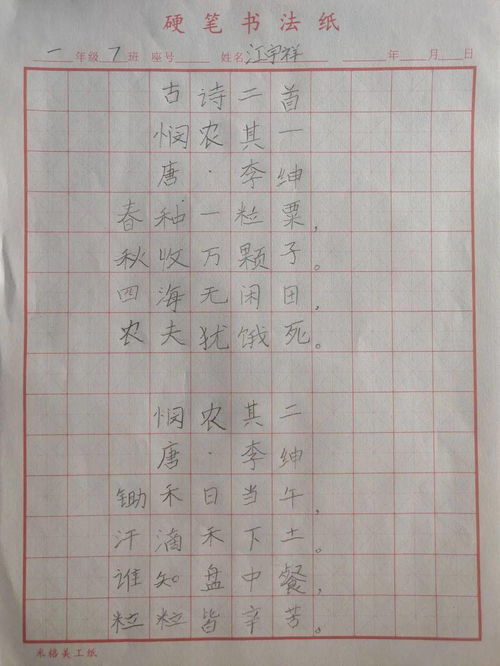 硬笔书法纸
一年级7班 座号 姓名江宇祥 年 月 日
古诗二首
悯农其一
唐·李绅
春种一粒粟,
秋收万颗子。
四海无闲田,
农夫犹饿死。
悯农其二
唐·李绅
锄禾日当午,
汗滴禾下土。
谁知盘中餐,
粒粒皆辛苦。
米格美工纸